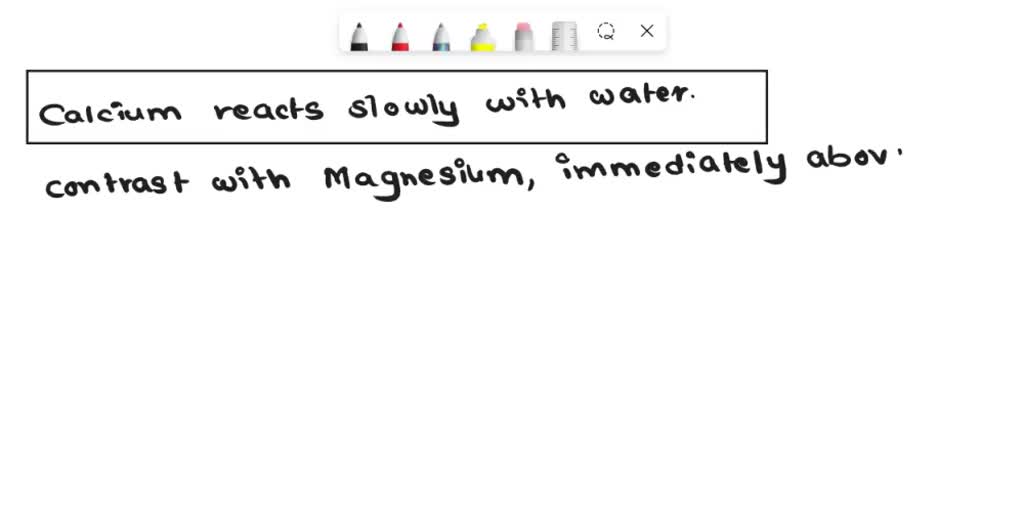 Calcium reacts slowly with water.
contrast with Magnesium, immediately abov